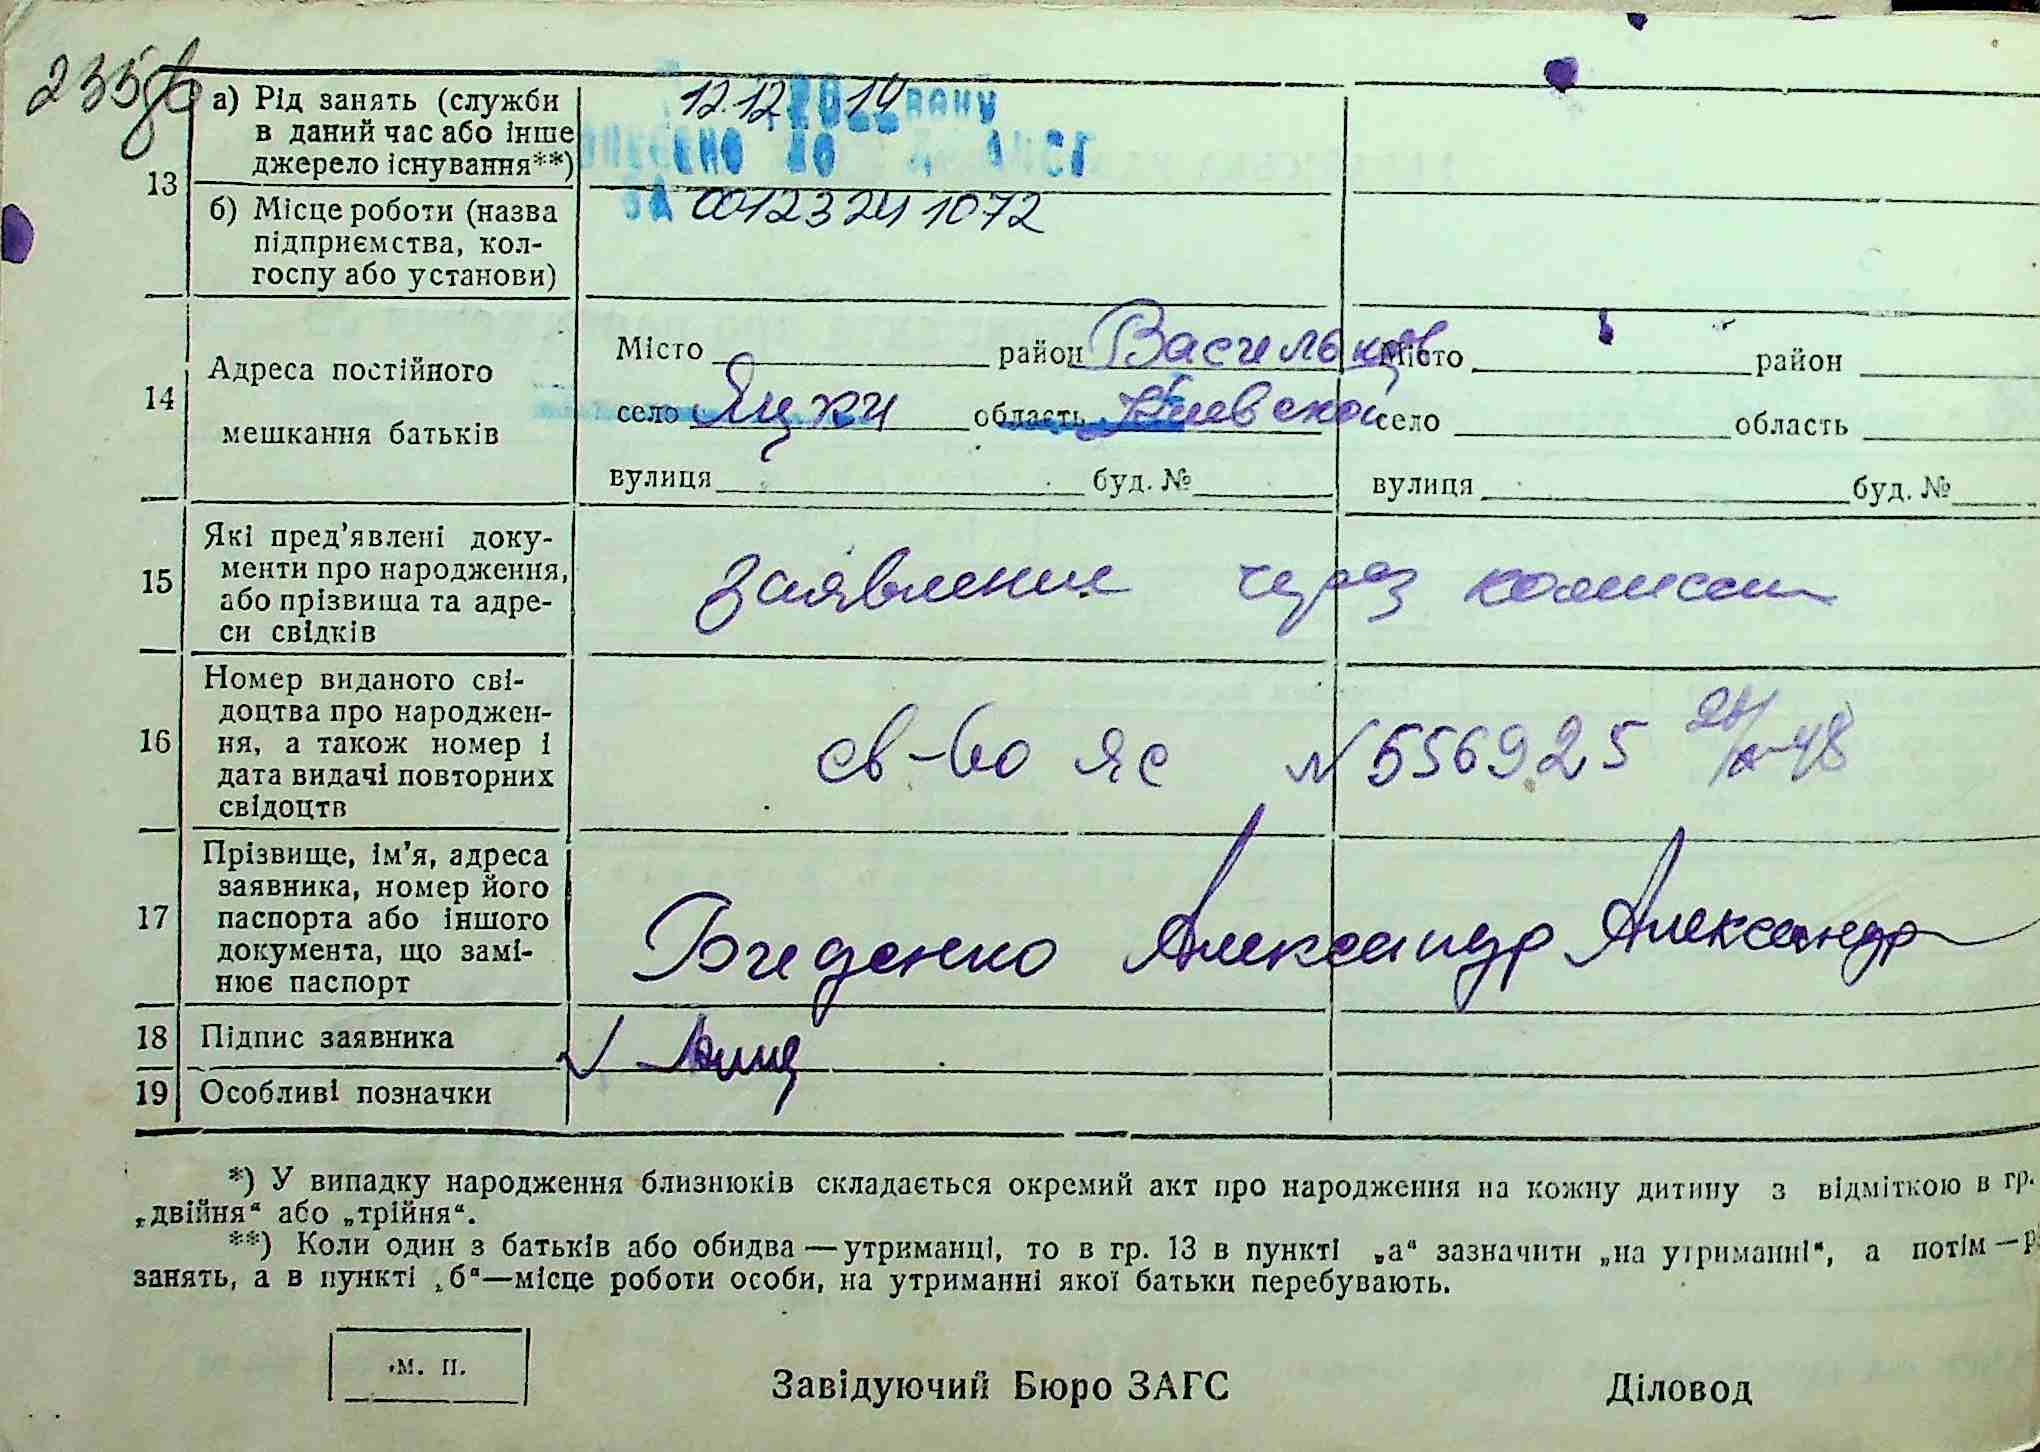 235
а) Рід занять (служби в даний час або інше джерело існування**)
12.12.2014
13
б) Місце роботи (назва підприємства, колгоспу або установи)
за 00123241072
14
Адреса постійного мешкання батьків
Місто район Васильков
село Яцки область Киевской
вулиця буд. №
Місто район
село область
вулиця буд. №
15
Які пред'явлені документи про народження, або прізвища та адреси свідків
заявление через комисси
16
Номер виданого свідоцтва про народження, а також номер і дата видачі повторних свідоцтв
св-во яс № 556925
17
Прізвище, ім'я, адреса заявника, номер його паспорта або іншого документа, що замінює паспорт
Александр Александр
18
Підпис заявника
19
Особливі позначки
*) У випадку народження близнюків складається окремий акт про народження на кожну дитину з відміткою в гр.
„двійня“ або „трійня“.
**) Коли один з батьків або обидва — утриманці, то в гр. 13 в пункті „а“ зазначити „на утриманні“, а потім —
занять, а в пункті „б“—місце роботи особи, на утриманні якої батьки перебувають.
М. П.
Завідуючий Бюро ЗАГС
Діловод